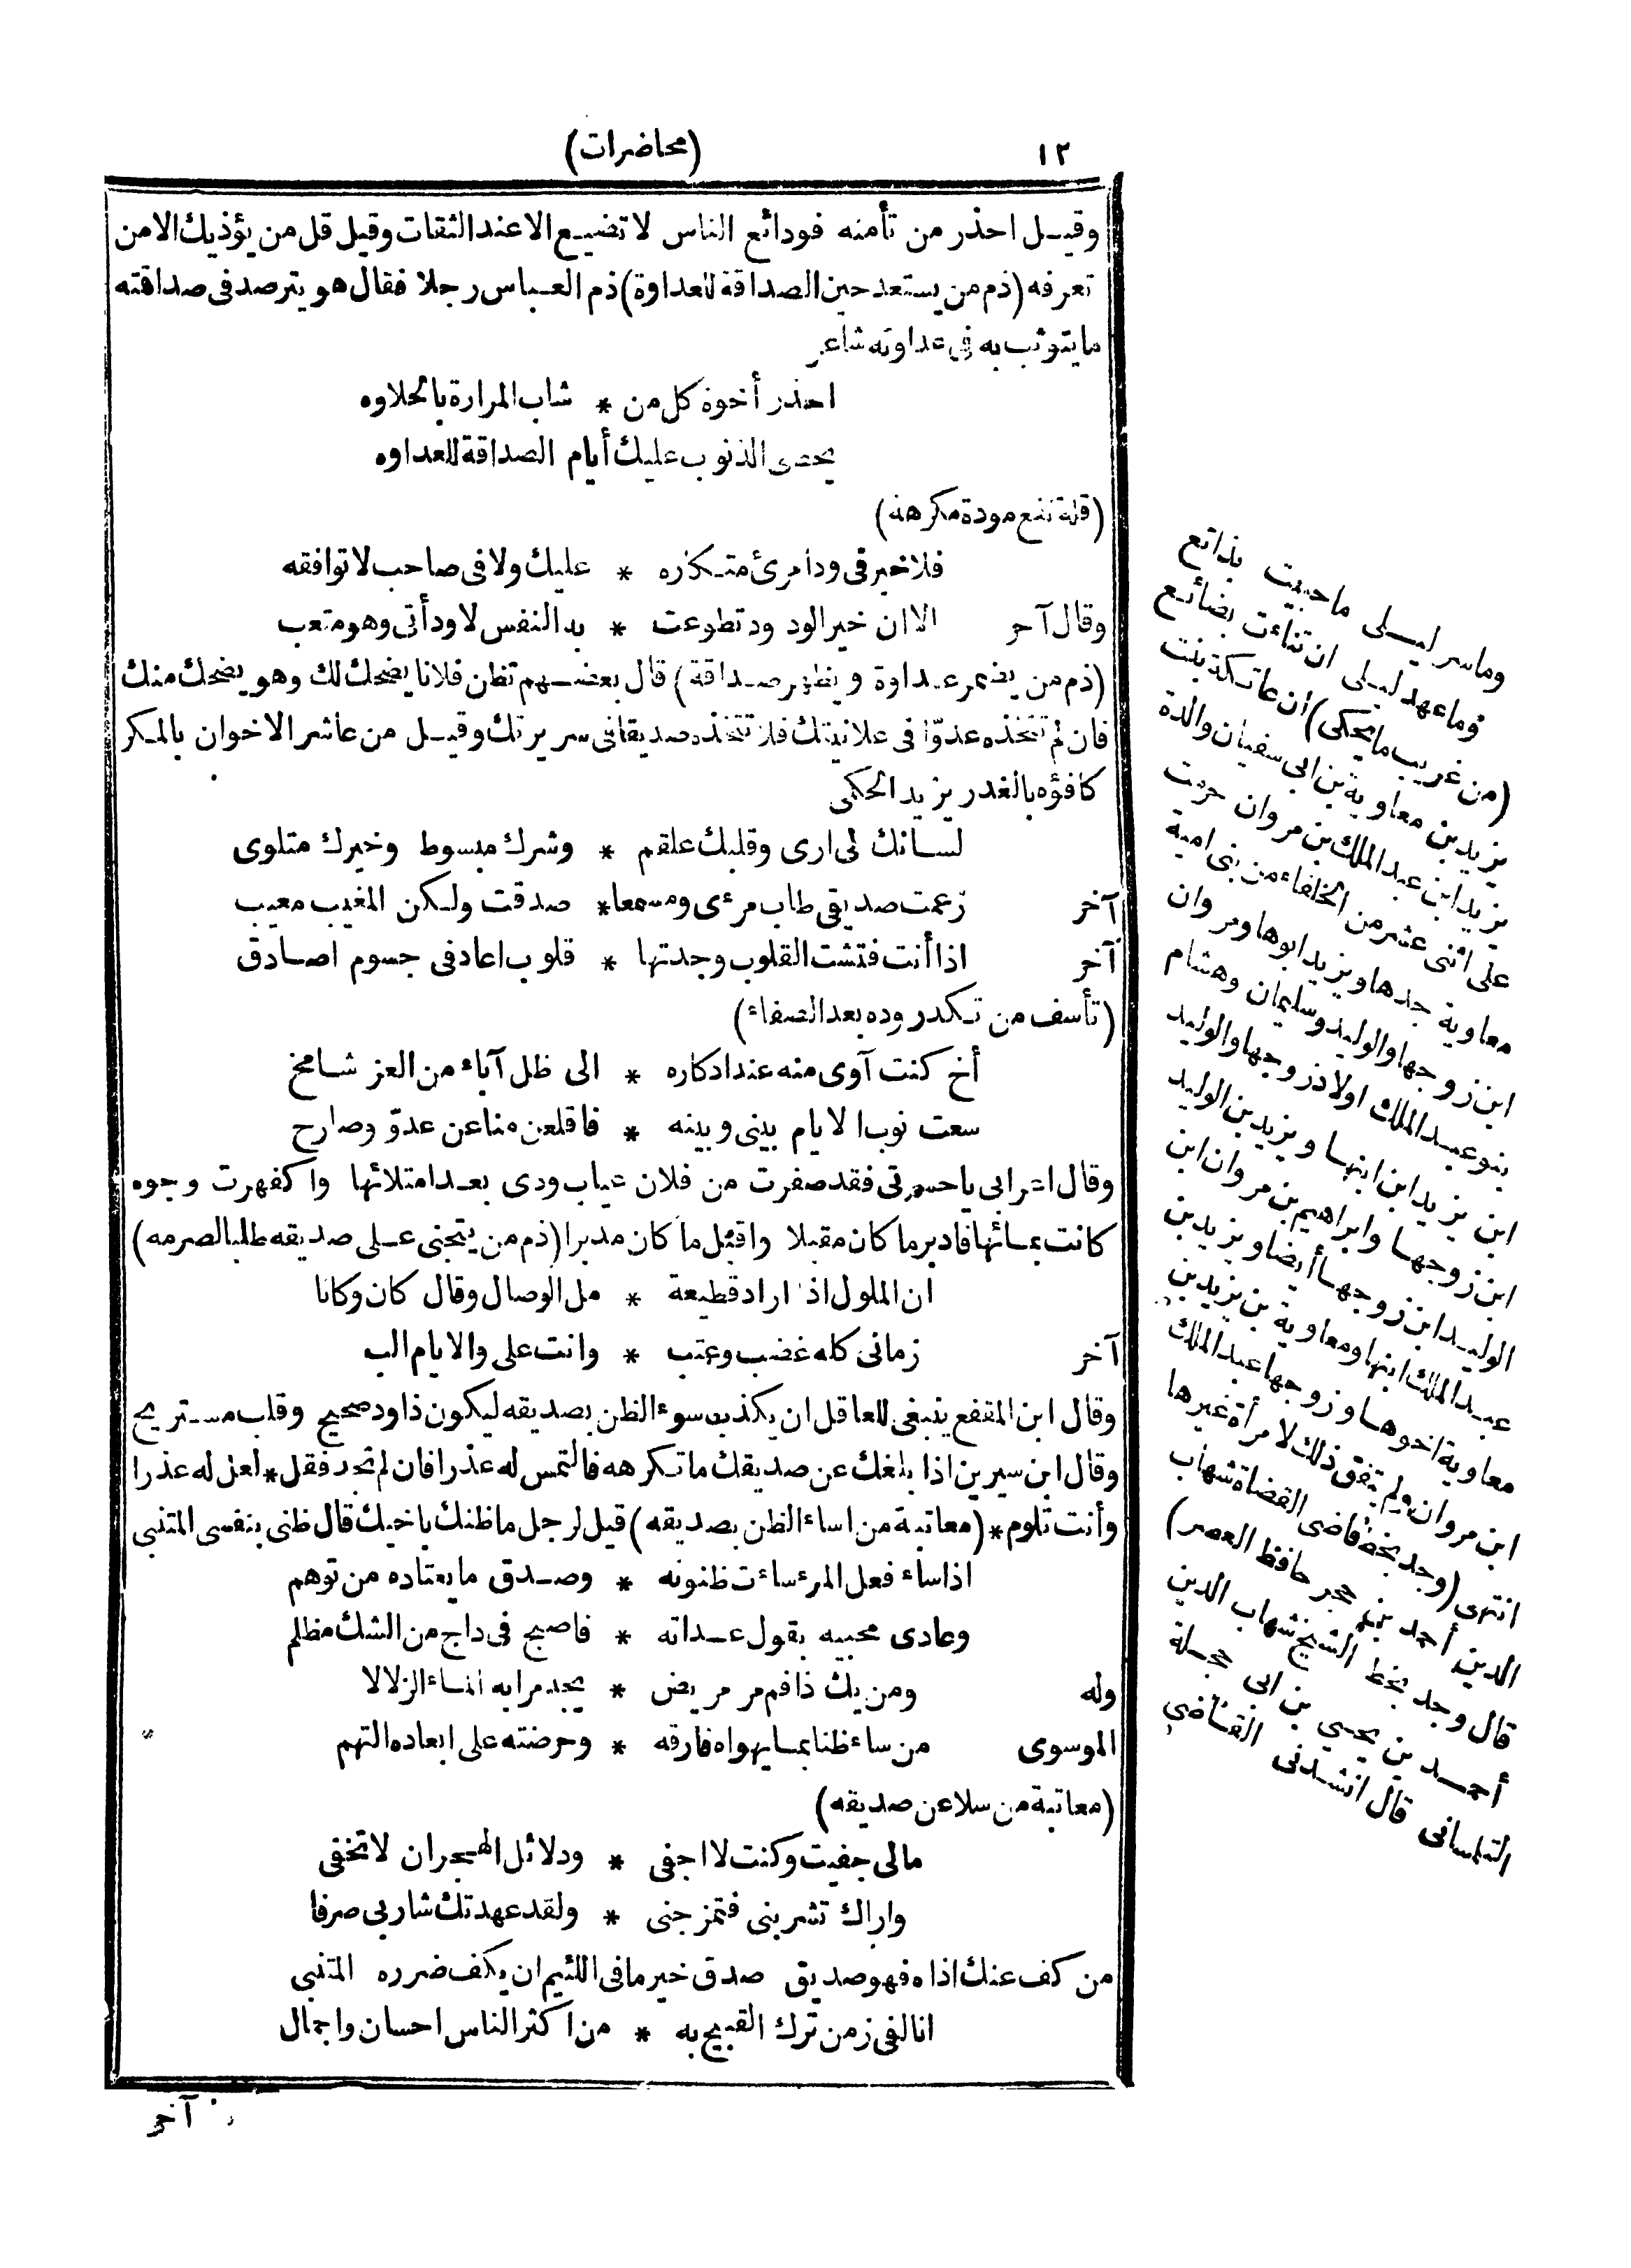 ١٢
(محاضرات)
وقيل احذر من تأمنه فودائع الناس لا تضيع الا عند الثقات وقيل قل من يؤذيك الا من
تعرفه (ذم من يستعد حين الصداقة للعداوة) ذم العباس رجلا فقال هو يترصد فى صداقته
ما يتوثب به فى عداوته شاعر
احذر أخوة كل من * شاب المرارة بالحلاوه
يحصى الذنوب عليك أيام الصداقة للعداوه
(قلة نفع مودة مكرهة)
فلا خير فى ود امرئ متكاره * عليك ولا فى صاحب لا توافقه
وقال آخر الا ان خير الود ود تطوعت * به النفس لا ود أتى وهو متعب
(ذم من يضمر عداوة ويظهر صداقة) قال بعضهم تظن فلانا يضحك لك وهو يضحك منك
فان لم تتخذه عدوّا فى علانيتك فلا تتخذه صديقا فى سريرتك وقيل من عاشر الاخوان بالمكر
كافؤه بالغدر يزيد الحكمى
لسانك لى ارى وقلبك علقم * وشرك مبسوط وخيرك متلوى
آخر زعمت صديقى طاب مرءى ومسمعا * صدقت ولكن المغيب معيب
آخر اذا أنت فتشت القلوب وجدتها * قلوب اعاد فى جسوم اصادق
(تأسف من تكدر وده بعد الصفاء)
أخ كنت آوى منه عند ادكاره * الى ظل آباء من العز شامخ
سعت نوب الايام بينى وبينه * فاقلعن منا عن عدوّ وصارح
وقال اعرابى يا حسرتى فقد صفرت من فلان عياب ودى بعد امتلائها واكفهرت وجوه
كانت بمائها فادبر ما كان مقبلا واقبل ما كان مدبرا (ذم من يتجنى على صديقه طلبا لصرمه)
ان الملول اذا اراد قطيعة * مل الوصال وقال كان وكانا
آخر زمانى كله غضب وعتب * وانت على والايام الب
وقال ابن المقفع ينبغى للعاقل ان يكذب سوء الظن بصديقه ليكون ذا ود صحيح وقلب مستريح
وقال ابن سيرين اذا بلغك عن صديقك ما تكرهه فالتمس له عذرا فان لم تجد فقل * لعل له عذرا
وأنت تلوم * (معاتبة من اساء الظن بصديقه) قيل لرجل ما ظنك باخيك قال ظنى بنفسى المتنبى
اذا ساء فعل المرء ساءت ظنونه * وصدق ما يعتاده من توهم
وعادى محبيه بقول عداته * فاصبح فى داج من الشك مظلم
وله ومن يك ذا فم مر مريض * يجد مرا به الماء الزلالا
الموسوى من ساء ظنا بما يهواه فارقه * وحرضته على ابعاده التهم
(معاتبة من سلا عن صديقه)
مالى جفيت وكنت لا اجفى * ودلائل الهجران لا تخفى
واراك تشربنى فتمزجنى * ولقد عهدتك شاربى صرفا
من كف عنك اذاه فهو صديق صدق خير ما فى اللئيم ان يكف ضرره المتنبى
انا لفى زمن ترك القبيح به * من اكثر الناس احسان واجمال
آخر
وما سر ليلى ما حييت بذائع
وما عهد ليلى ان تناءت بضائع
(من غريب ما يحكى) ان عاتكة بنت
يزيد بن معاوية بن ابى سفيان والدة
يزيد ابن عبد الملك بن مروان حرمت
على اثنى عشر من الخلفاء من بنى امية
معاوية جدها ويزيد ابوها ومروان
ابن زوجها والوليد وسليمان وهشام
بنو عبد الملك اولاد زوجها والوليد
ابن يزيد ابن ابنها ويزيد بن الوليد
ابن زوجها وابراهيم بن مروان ابن
الوليد ابن زوجها أيضا ويزيد بن
عبد الملك ابنها ومعاوية بن يزيد بن
معاوية اخوها وزوجها عبد الملك
ابن مروان ولم يتفق ذلك لامرأة غيرها
انتهى (وجد بخط قاضى القضاة شهاب
الدين أحمد بن حجر حافظ العصر)
قال وجد بخط الشيخ شهاب الدين
أحمد بن يحيى بن ابى حجلة
التلمسانى قال انشدنى القاضى